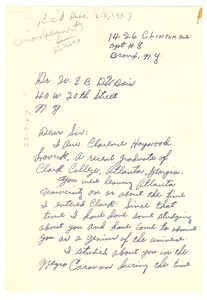 Rec'd Dec 23, 1947
1426 Clinton Ave
Apt # 8
Bronx, N.Y.
Dr. W. E. B. Du Bois
40 W 20th Street
N.Y.
Dear Sir:
I am Clarence Haywood
Lovick, A recent graduate of
Clark College, Atlanta, Georgia.
You were leaving Atlanta
University on or about the time
I entered Clark. Since that
time I have done some studying
about you and have come to admire
you as a genius of the universe.
I studied about you in the
Negro Caravan during the time